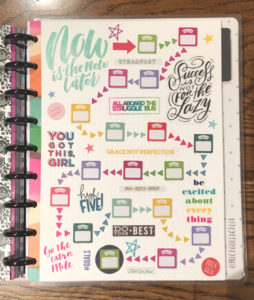 Now
is the New
later
STEADFAST
Success
is NOT
FOR the
lazy
ALL ABOARD THE
STRUGGLE BUS
YOU
GOT
THIS,
GIRL
GRACE NOT PERFECTION
PRAY • HUSTLE • REPEAT
be
excited
about
every
thing
high
FIVE!
DO
YOUR
BEST
Go the
extra
Mile
#GOALS